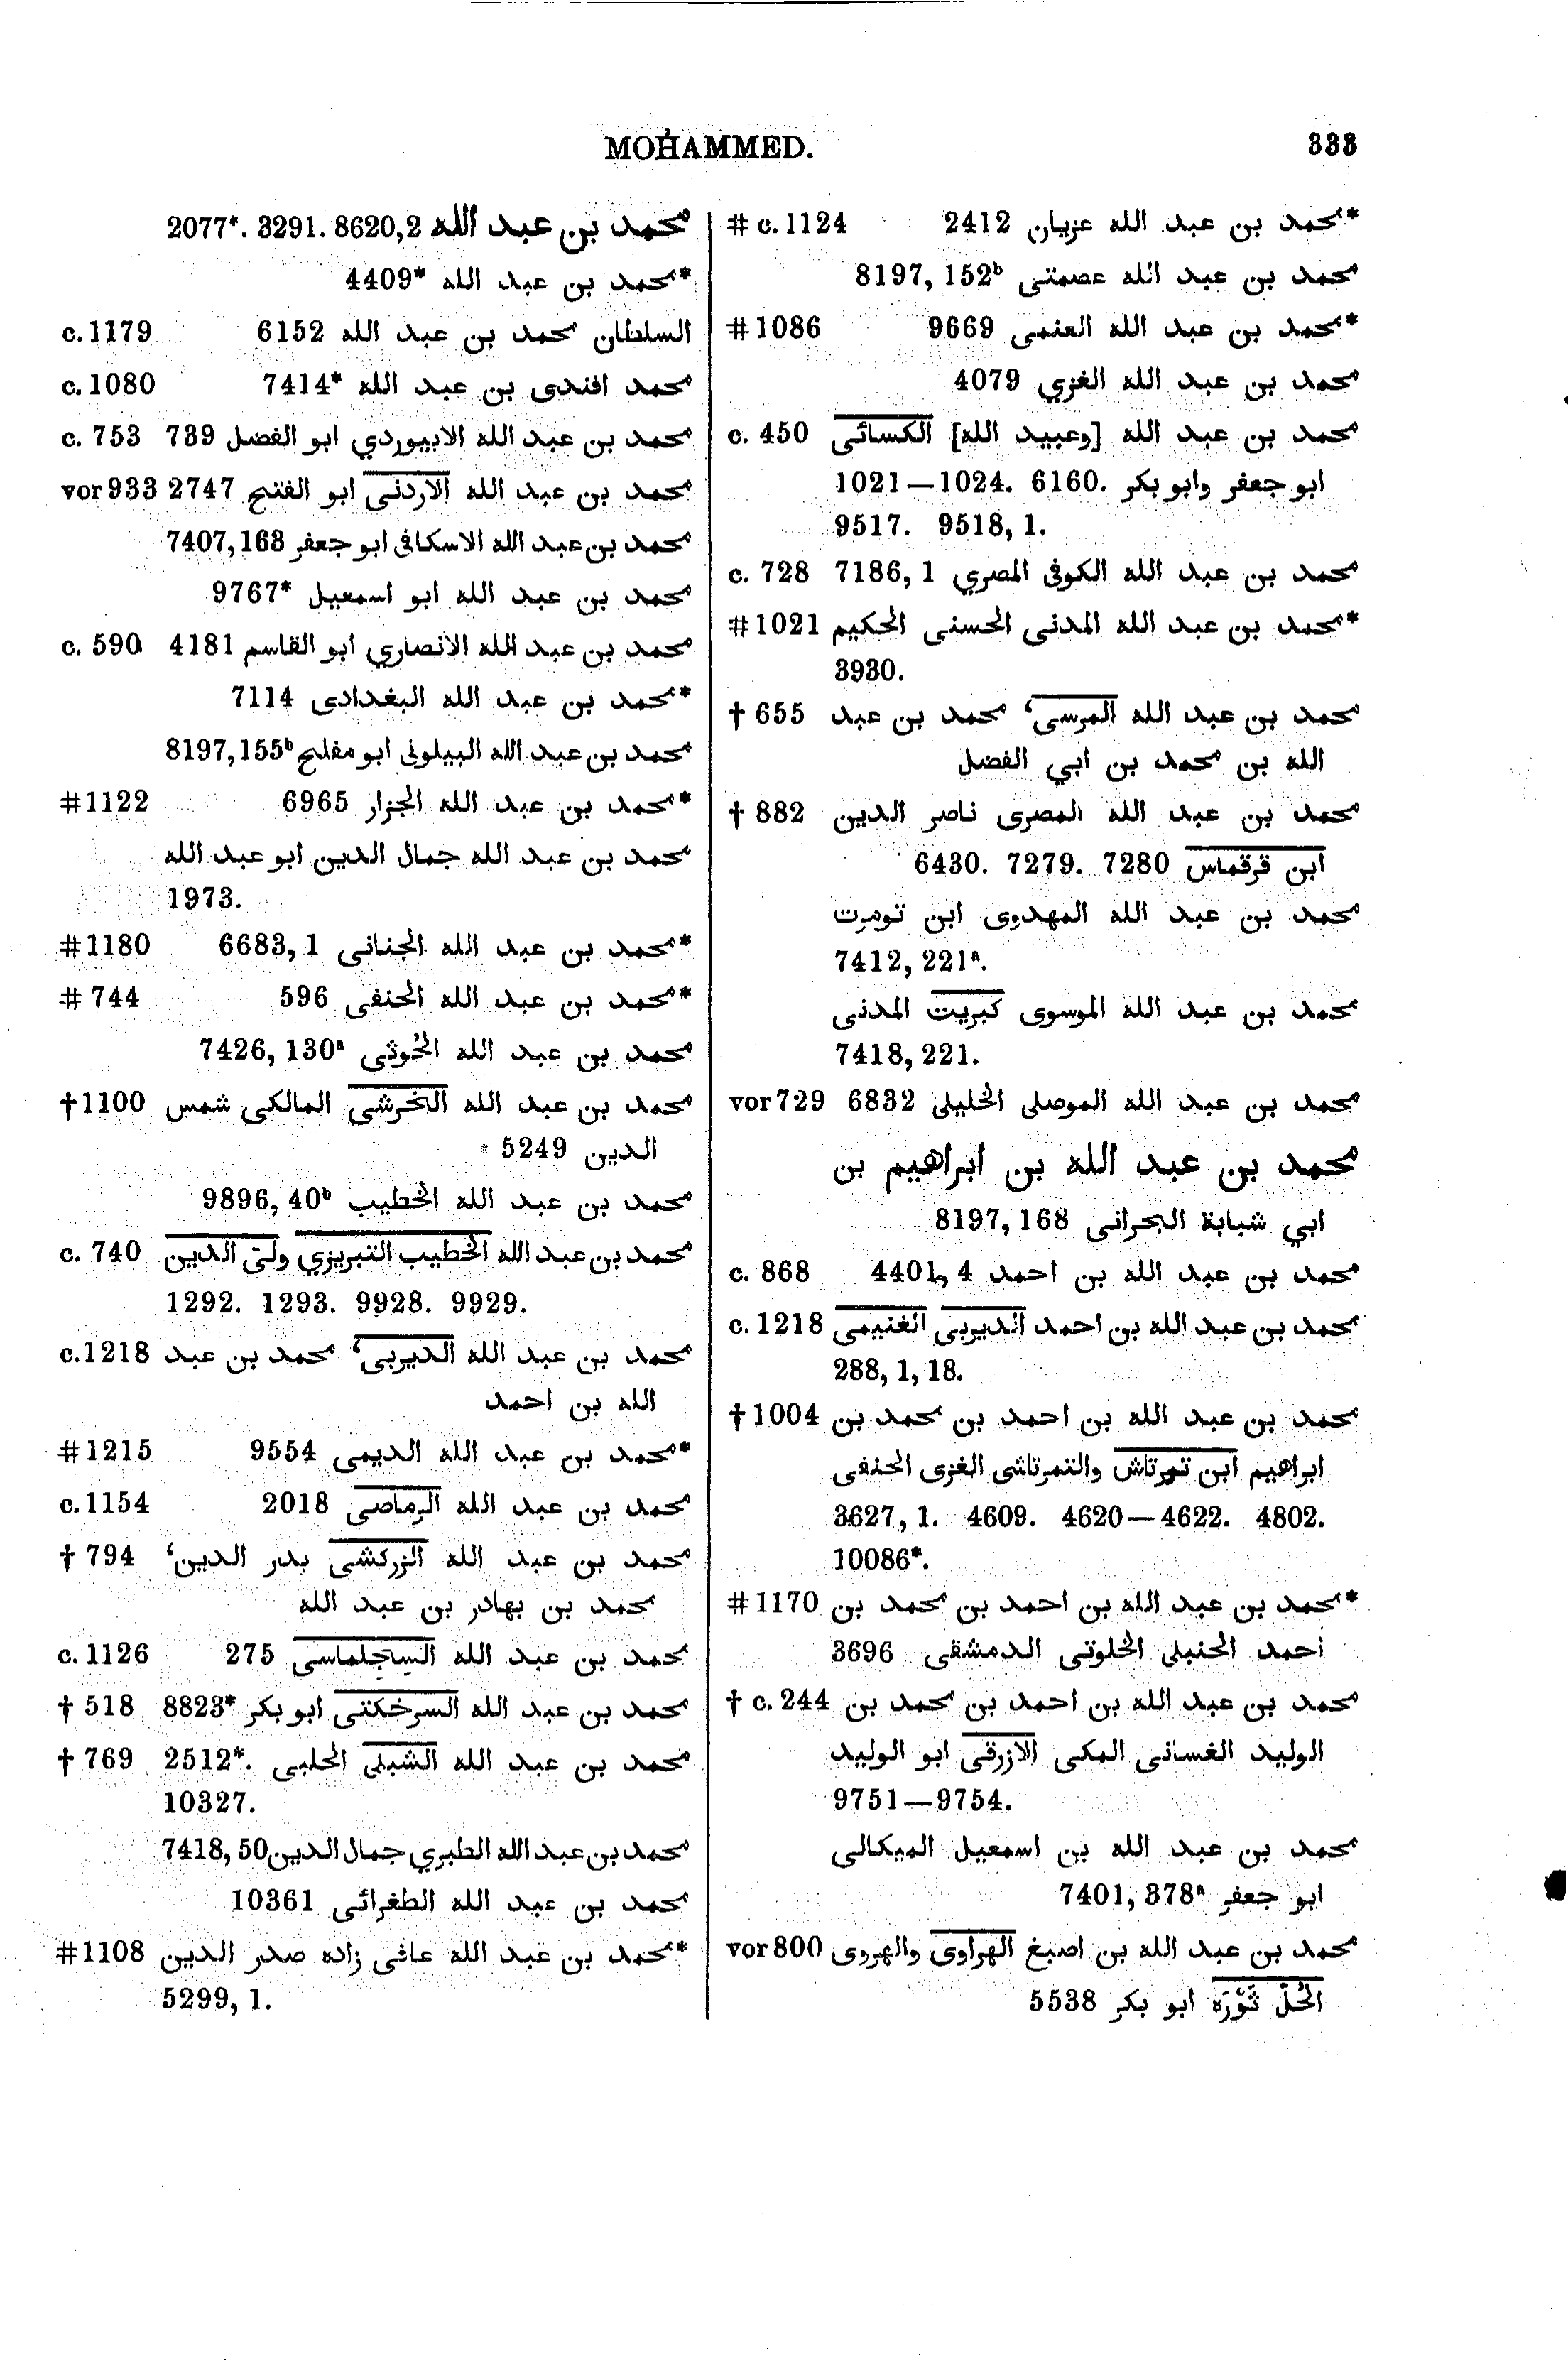 MOḢAMMED.
333
محمد بن عبد الله 2077*. 3291. 8620,2
*محمد بن عبد الله 4409*
السلطان محمد بن عبد الله 6152 c. 1179
محمد افندى بن عبد الله 7414* c. 1080
محمد بن عبد الله الابيوردي ابو الفضل 739 c. 753
محمد بن عبد الله الاردنى ابو الفتح 2747 vor 933
محمد بن عبد الله الاسكافى ابو جعفر 7407, 163
محمد بن عبد الله ابو اسمعيل 9767*
محمد بن عبد الله الانصاري ابو القاسم 4181 c. 590
*محمد بن عبد الله البغدادى 7114
محمد بن عبد الله البيلونى ابو مفلح 8197, 155ᵇ
*محمد بن عبد الله الجزار 6965 #1122
محمد بن عبد الله جمال الدين ابو عبد الله
1973.
*محمد بن عبد الله الجنانى 6683, 1 #1180
*محمد بن عبد الله الحنفى 596 #744
محمد بن عبد الله الحُوثى 7426, 130ᵃ
محمد بن عبد الله الخرشى المالكى شمس †1100
الدين 5249
محمد بن عبد الله الخطيب 9896, 40ᵇ
محمد بن عبد الله الخطيب التبريزي ولىّ الدين c. 740
1292. 1293. 9928. 9929.
محمد بن عبد الله الديربى، محمد بن عبد c. 1218
الله بن احمد
*محمد بن عبد الله الديمى 9554 #1215
محمد بن عبد الله الرماصى 2018 c. 1154
محمد بن عبد الله الزركشى بدر الدين، †794
محمد بن بهادر بن عبد الله
محمد بن عبد الله السجلماسى 275 c. 1126
محمد بن عبد الله السرخكتى ابو بكر 8823* †518
محمد بن عبد الله الشبلى الحلبى 2512*. †769
10327.
محمد بن عبد الله الطبري جمال الدين 7418, 50
محمد بن عبد الله الطغرائى 10361
*محمد بن عبد الله عافى زاده صدر الدين #1108
5299, 1.
*محمد بن عبد الله عزيان 2412 #c. 1124
محمد بن عبد الله عصمتى 8197, 152ᵇ
*محمد بن عبد الله العنمى 9669 #1086
محمد بن عبد الله الغزي 4079
محمد بن عبد الله [وعبيد الله] الكسائى c. 450
ابو جعفر وابو بكر 1021—1024. 6160.
9517. 9518, 1.
محمد بن عبد الله الكوفى المصري 7186, 1 c. 728
*محمد بن عبد الله المدنى الحسنى الحكيم #1021
3930.
محمد بن عبد الله المرسى، محمد بن عبد †655
الله بن محمد بن ابي الفضل
محمد بن عبد الله المصرى ناصر الدين †882
ابن قرقماس 6430. 7279. 7280
محمد بن عبد الله المهدوى ابن تومرت
7412, 221ᵃ.
محمد بن عبد الله الموسوى كبريت المدنى
7418, 221.
محمد بن عبد الله الموصلى الخليلى 6832 vor 729
محمد بن عبد الله بن ابراهيم بن
ابي شبابة البحرانى 8197, 168
محمد بن عبد الله بن احمد 4401, 4 c. 868
محمد بن عبد الله بن احمد الديربى الغنيمى c. 1218
288, 1, 18.
محمد بن عبد الله بن احمد بن محمد بن †1004
ابراهيم ابن تمرتاش والتمرتاشى الغزى الحنفى
3627, 1. 4609. 4620—4622. 4802.
10086*.
*محمد بن عبد الله بن احمد بن محمد بن #1170
احمد الحنبلى الخلوتى الدمشقى 3696
محمد بن عبد الله بن احمد بن محمد بن †c. 244
الوليد الغسانى المكى الازرقى ابو الوليد
9751—9754.
محمد بن عبد الله بن اسمعيل الميكالى
ابو جعفر 7401, 378ᵃ
محمد بن عبد الله بن اصبغ الهراوى والهروى vor 800
ابو بكر 5538